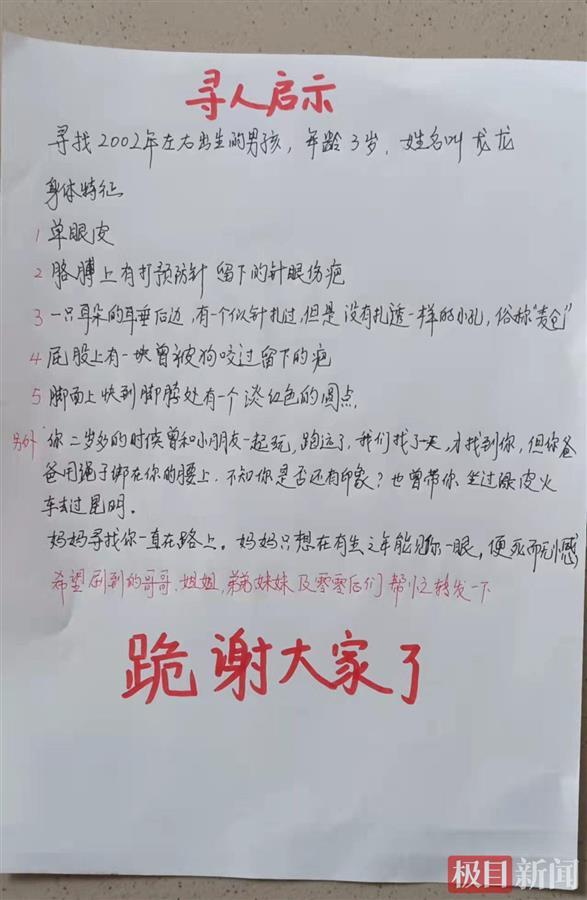 寻人启示
寻找2002年左右出生的男孩，年龄3岁，姓名叫龙龙
身体特征
1 单眼皮
2 胳膊上有打预防针留下的针眼伤疤
3 一只耳朵的耳垂后边，有一个似针扎过，但是没有扎透一样的小孔，俗称"麦仓"
4 屁股上有一块曾被狗咬过留下的疤
5 脚面上快到脚脖处有一个淡红色的圆点．
另外 你二岁多的时侯曾和小朋友一起玩，跑远了，我们找了一天，才找到你，但你爸
爸用绳子绑在你的腰上．不知你是否还有印象？也曾带你坐过绿皮火
车去过昆明．
妈妈寻找你一直在路上。妈妈只想在有生之年能见你一眼，便死而无憾
希望刷到的哥哥．姐姐，弟弟妹妹及零零后们帮忙转发一下
跪谢大家了
极目新闻